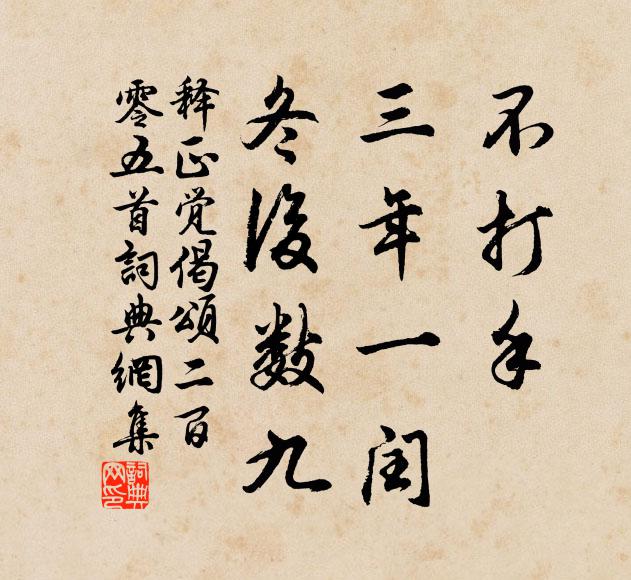 不打手
三年一闰
冬后数九
释正觉偈颂二百
零五首詞典網集
詞典网印